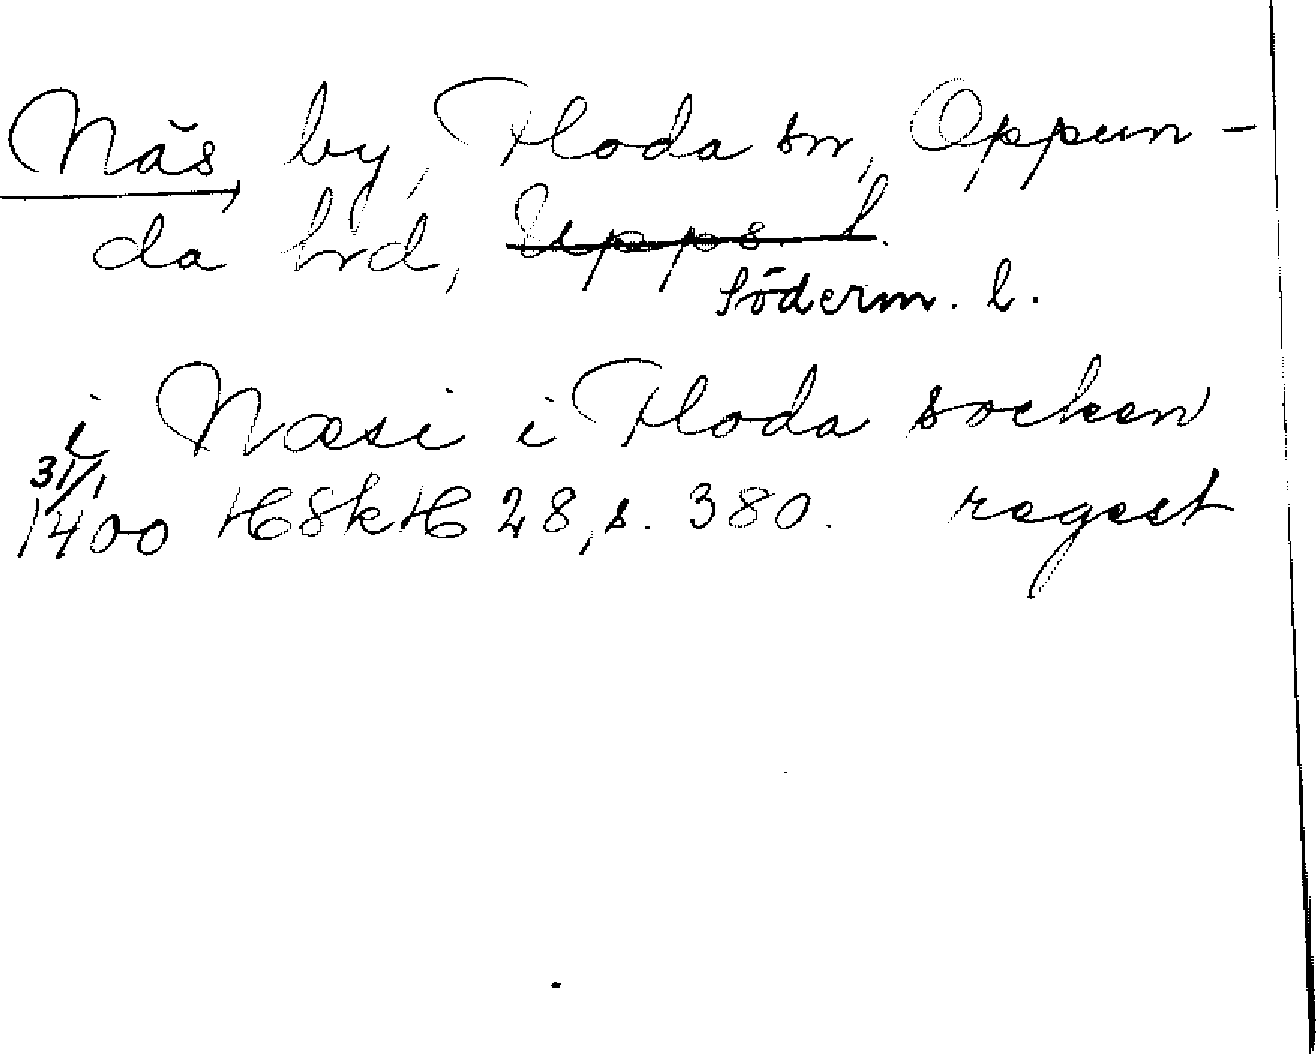 Näs, by, Floda sn, Oppun-
da hrd, Upps. l.
Söderm. l.
i Næsi i Floda socken
31/1
1400 HSkH 28, s. 380. regest